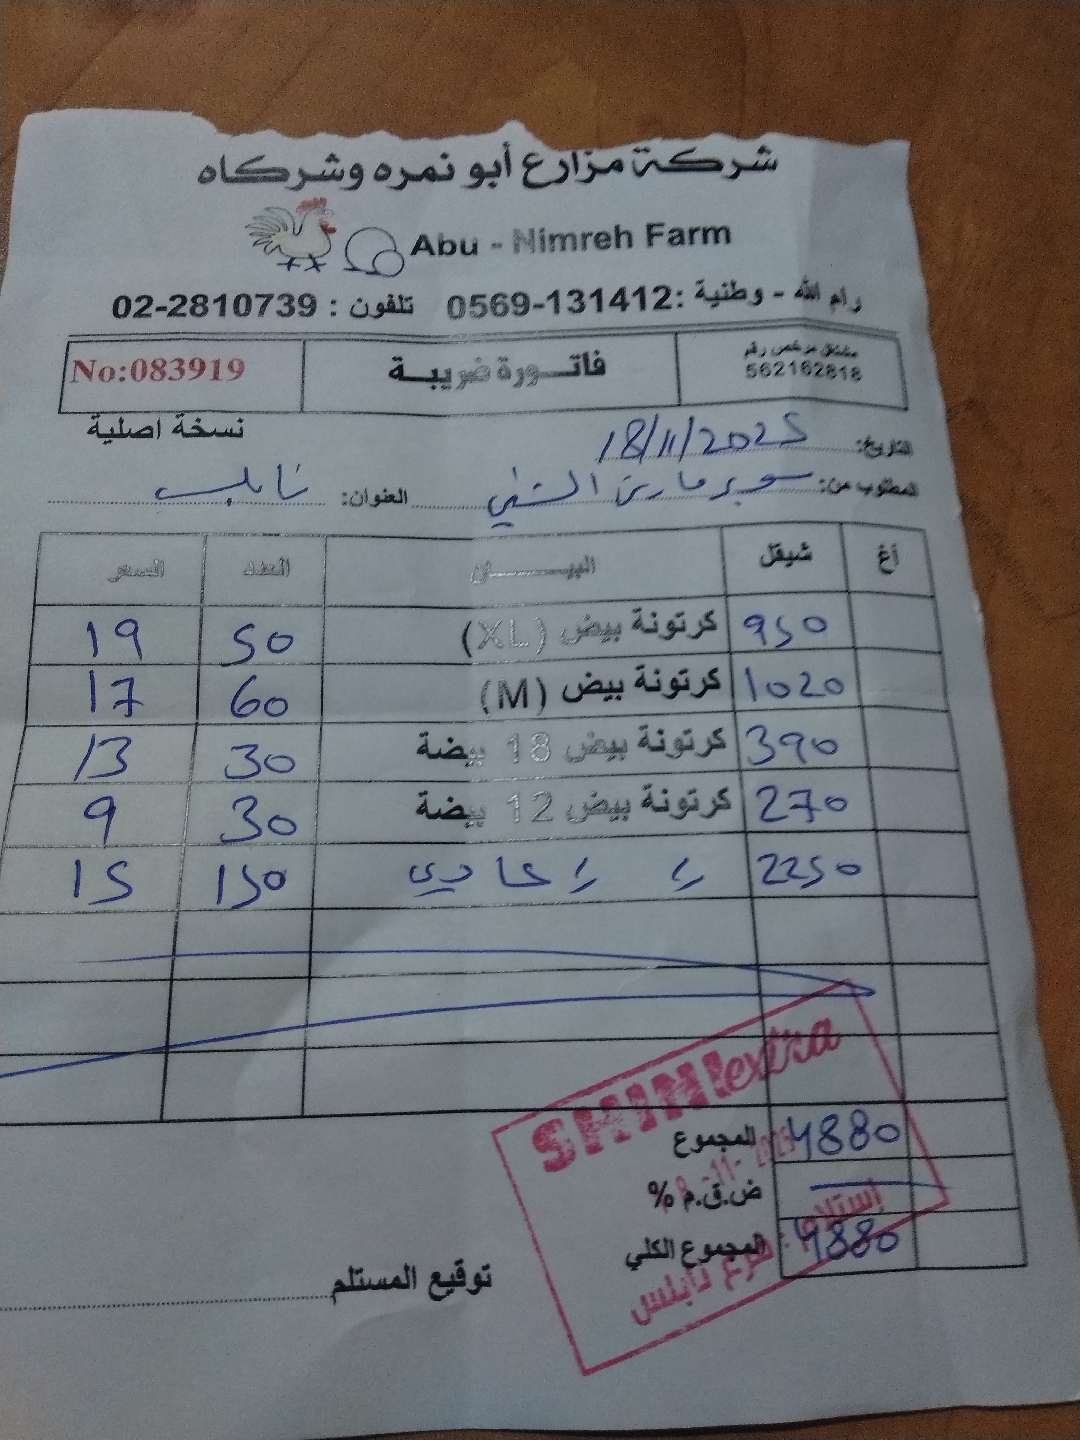 شركة مزارع أبو نمره وشركاه
Abu - Nimreh Farm
رام الله - وطنية: 0569-131412 تلفون : 02-2810739
مشتغل مرخص رقم
562162818
فاتـــورة ضريبــة
No:083919
نسخة اصلية
التاريخ: 18/11/2025
المطلوب من: سوبر ماركت الشني العنوان: نابلس
أغ شيقل البيـــــــان العدد السعر
950 كرتونة بيض (XL) 50 19
1020 كرتونة بيض (M) 60 17
390 كرتونة بيض 18 بيضة 30 13
270 كرتونة بيض 12 بيضة 30 9
2250 عادي 150 15
المجموع 4880
ض.ق.م %
المجموع الكلي 4880
توقيع المستلم
SHINI extra
إستلام : فرع نابلس